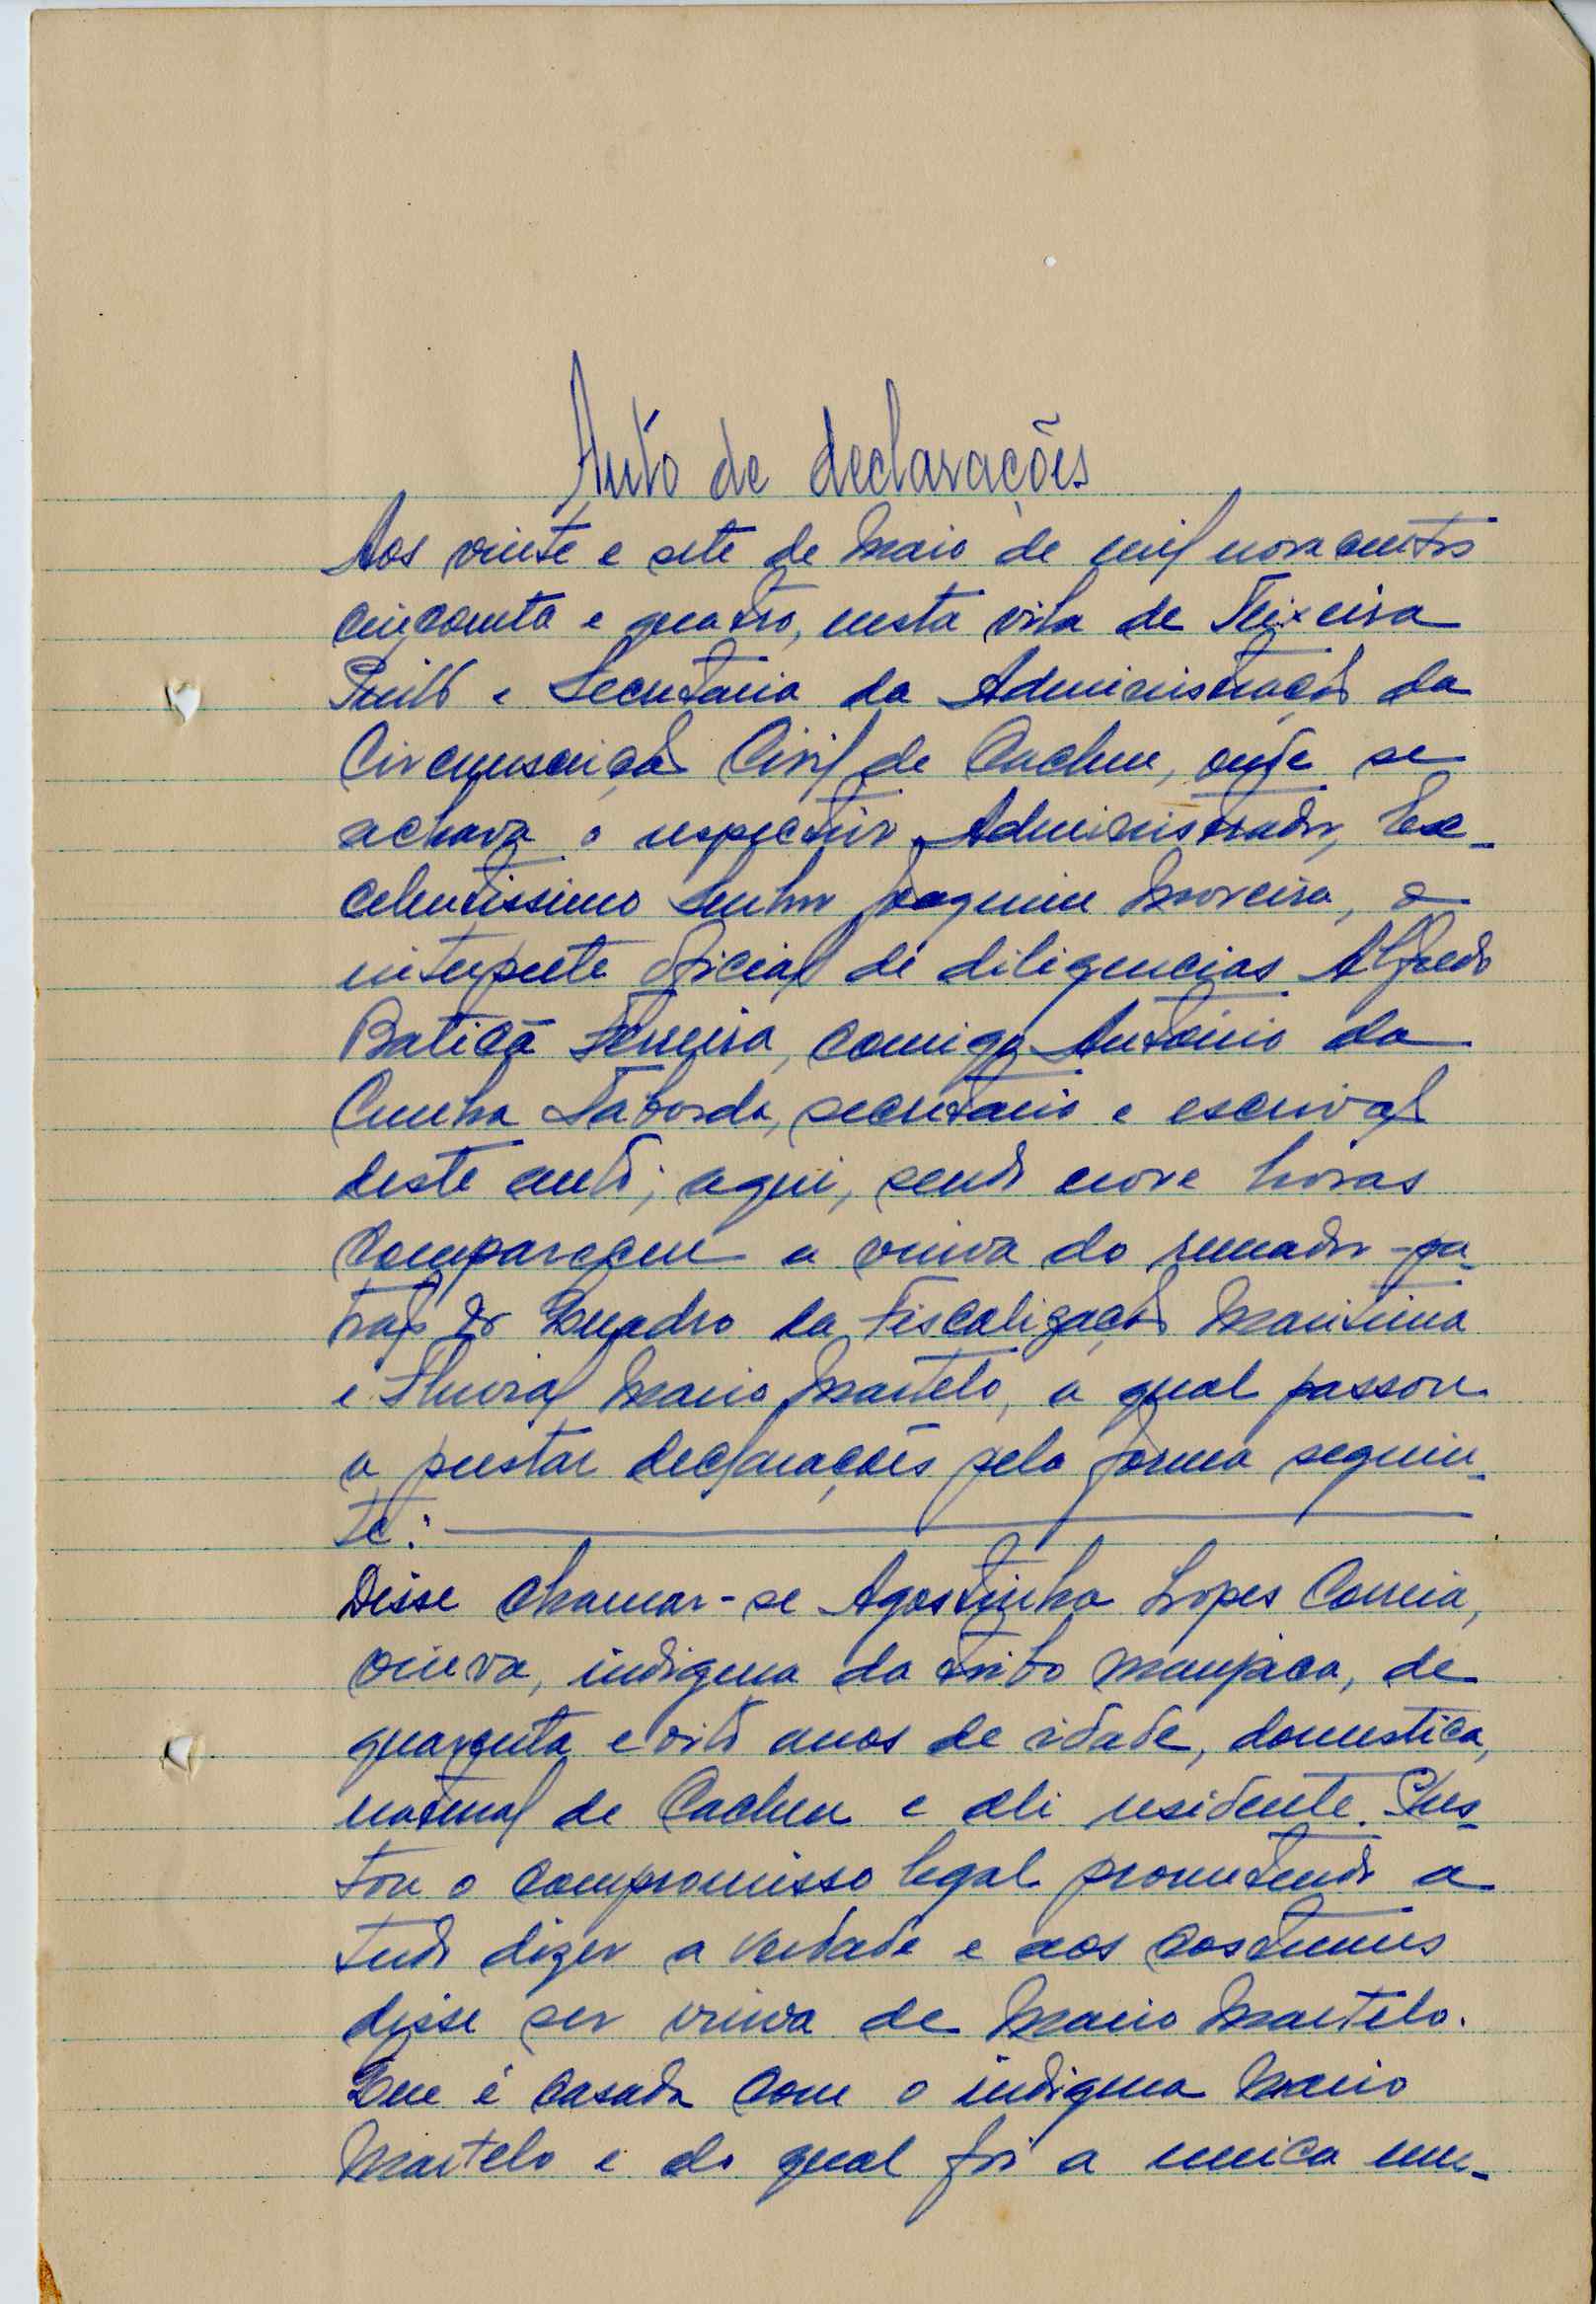 Auto de declarações
Aos vinte e sete de Maio de mil novecentos
cincoenta e quatro, nesta vila de Teixeira
Pinto e Secretaria da Administração da
Circunscrição Civil de Cacheu, onde se
achava o respectivo Administrador, Ex-
celentissimo Senhor Joaquim Moreira, o
interprete oficial de diligencias Alfredo
Baticã Ferreira, comigo António da
Cunha Taborda, secretario e escrivão
deste auto; aqui, sendo nove horas
compareceu a viuva do remador-pa-
trão do Quadro da Fiscalização Maritima
e Fluvial Mario Martelo, a qual passou
a prestar declarações pela forma seguin-
te:
Disse chamar-se Agostinha Lopes Correia,
viuva, indigena da tribo manjaca, de
quarenta e oito anos de idade, domestica,
natural de Cacheu e ali residente. Pres-
tou o compromisso legal prometendo a
tudo dizer a verdade e aos costumes
disse ser viuva de Mario Martelo.
Que é casada com o indigena Mario
Martelo e do qual foi a unica mu-